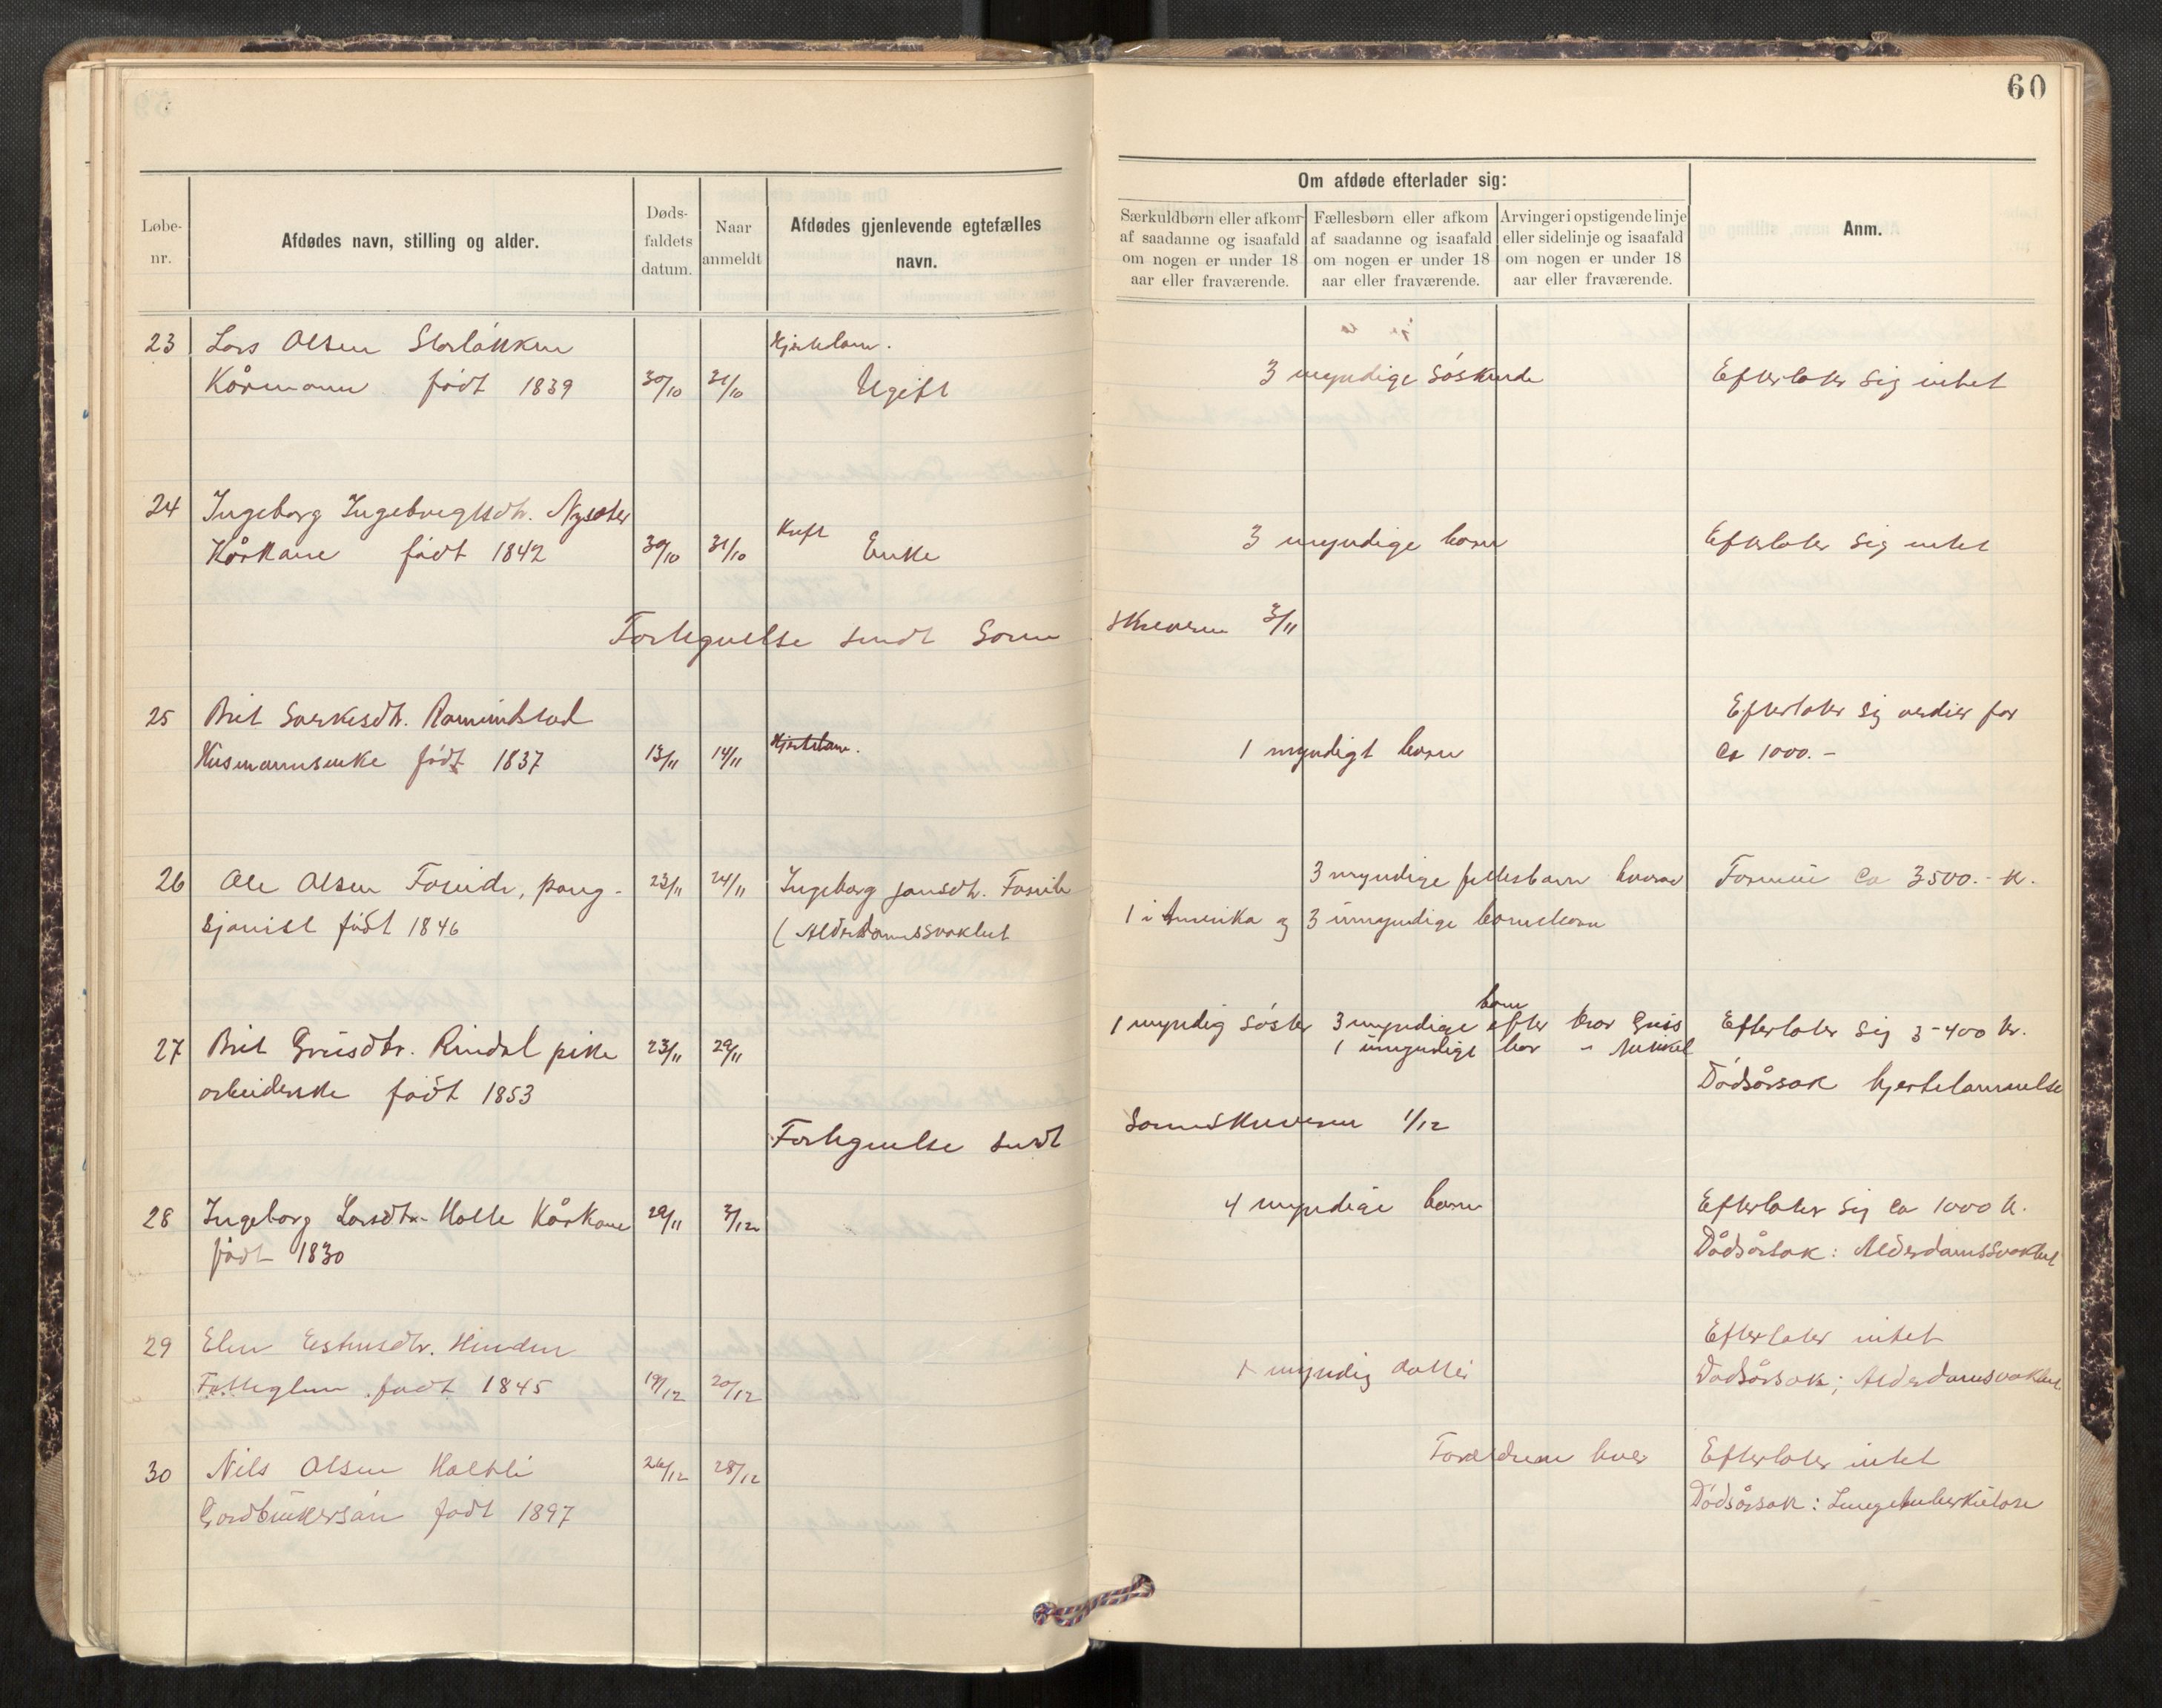 60
Løbe-
nr.
Afdødes navn, stilling og alder.
Døds-
faldets
datum.
Naar
anmeldt
Afdødes gjenlevende egtefælles
navn.
Om afdøde efterlader sig:
Særkuldbørn eller afkom
af saadanne og isaafald
om nogen er under 18
aar eller fraværende.
Fællesbørn eller afkom
af saadanne og isaafald
om nogen er under 18
aar eller fraværende.
Arvinger i opstigende linje
eller sidelinje og isaafald
om nogen er under 18
aar eller fraværende.
Anm.
23 Lars Olsen Storløkken Hjertelam.
Kårmann født 1839 30/10 31/10 Ugift 3 myndige søskende Efterlater sig intet
24 Ingeborg Ingebregtsdtr. Nysæter
Kårkane født 1842 30/10 31/10 Kreft Enke 3 myndige born Efterlater sig intet
Fortegnelse sendt Soren skriveren 3/11
25 Brit Larkesdtr. Efterlater sig verdier for
Husmannsenke født 1837 13/11 14/11 Hjertelam. 1 myndigt born Ca 1000.-
26 Ole Olsen pang- 23/11 24/11 Ingeborg Jansdtr. 3 myndige fellesbarn hvorav Formue ca 3500.- kr.
sjonist født 1846 (Alderdomssvakhet 1 i Amerika og 3 umyndige barnebarn
27 Brit Guisdtr. Rindal pike 23/11 29/11 1 myndig søster 3 myndige born efter bror Guis Efterlater sig 3-400 kr.
1 umyndige bor " Mikkel
arbeiderske født 1853 Dødsårsak hjertelammelse
Fortegnelse sendt Sorenskriveren 1/12
28 Ingeborg Larsdtr. Holte Kårkone 29/11 3/12 4 myndige born Efterlater sig ca 1000 kr.
født 1830 Dødsårsak: Alderdomssvakhet
29 Elen Estensdtr. Efterlater intet
Fattiglem født 1845 19/12 20/12 1 myndig datter Dødsårsak; Alderdomsvakhet
30 Nils Olsen Holtli 26/12 28/12 Foreldrene lever Efterlater intet
Gardbrukersøn født 1897 Dødsårsak: Lungetuberkulose